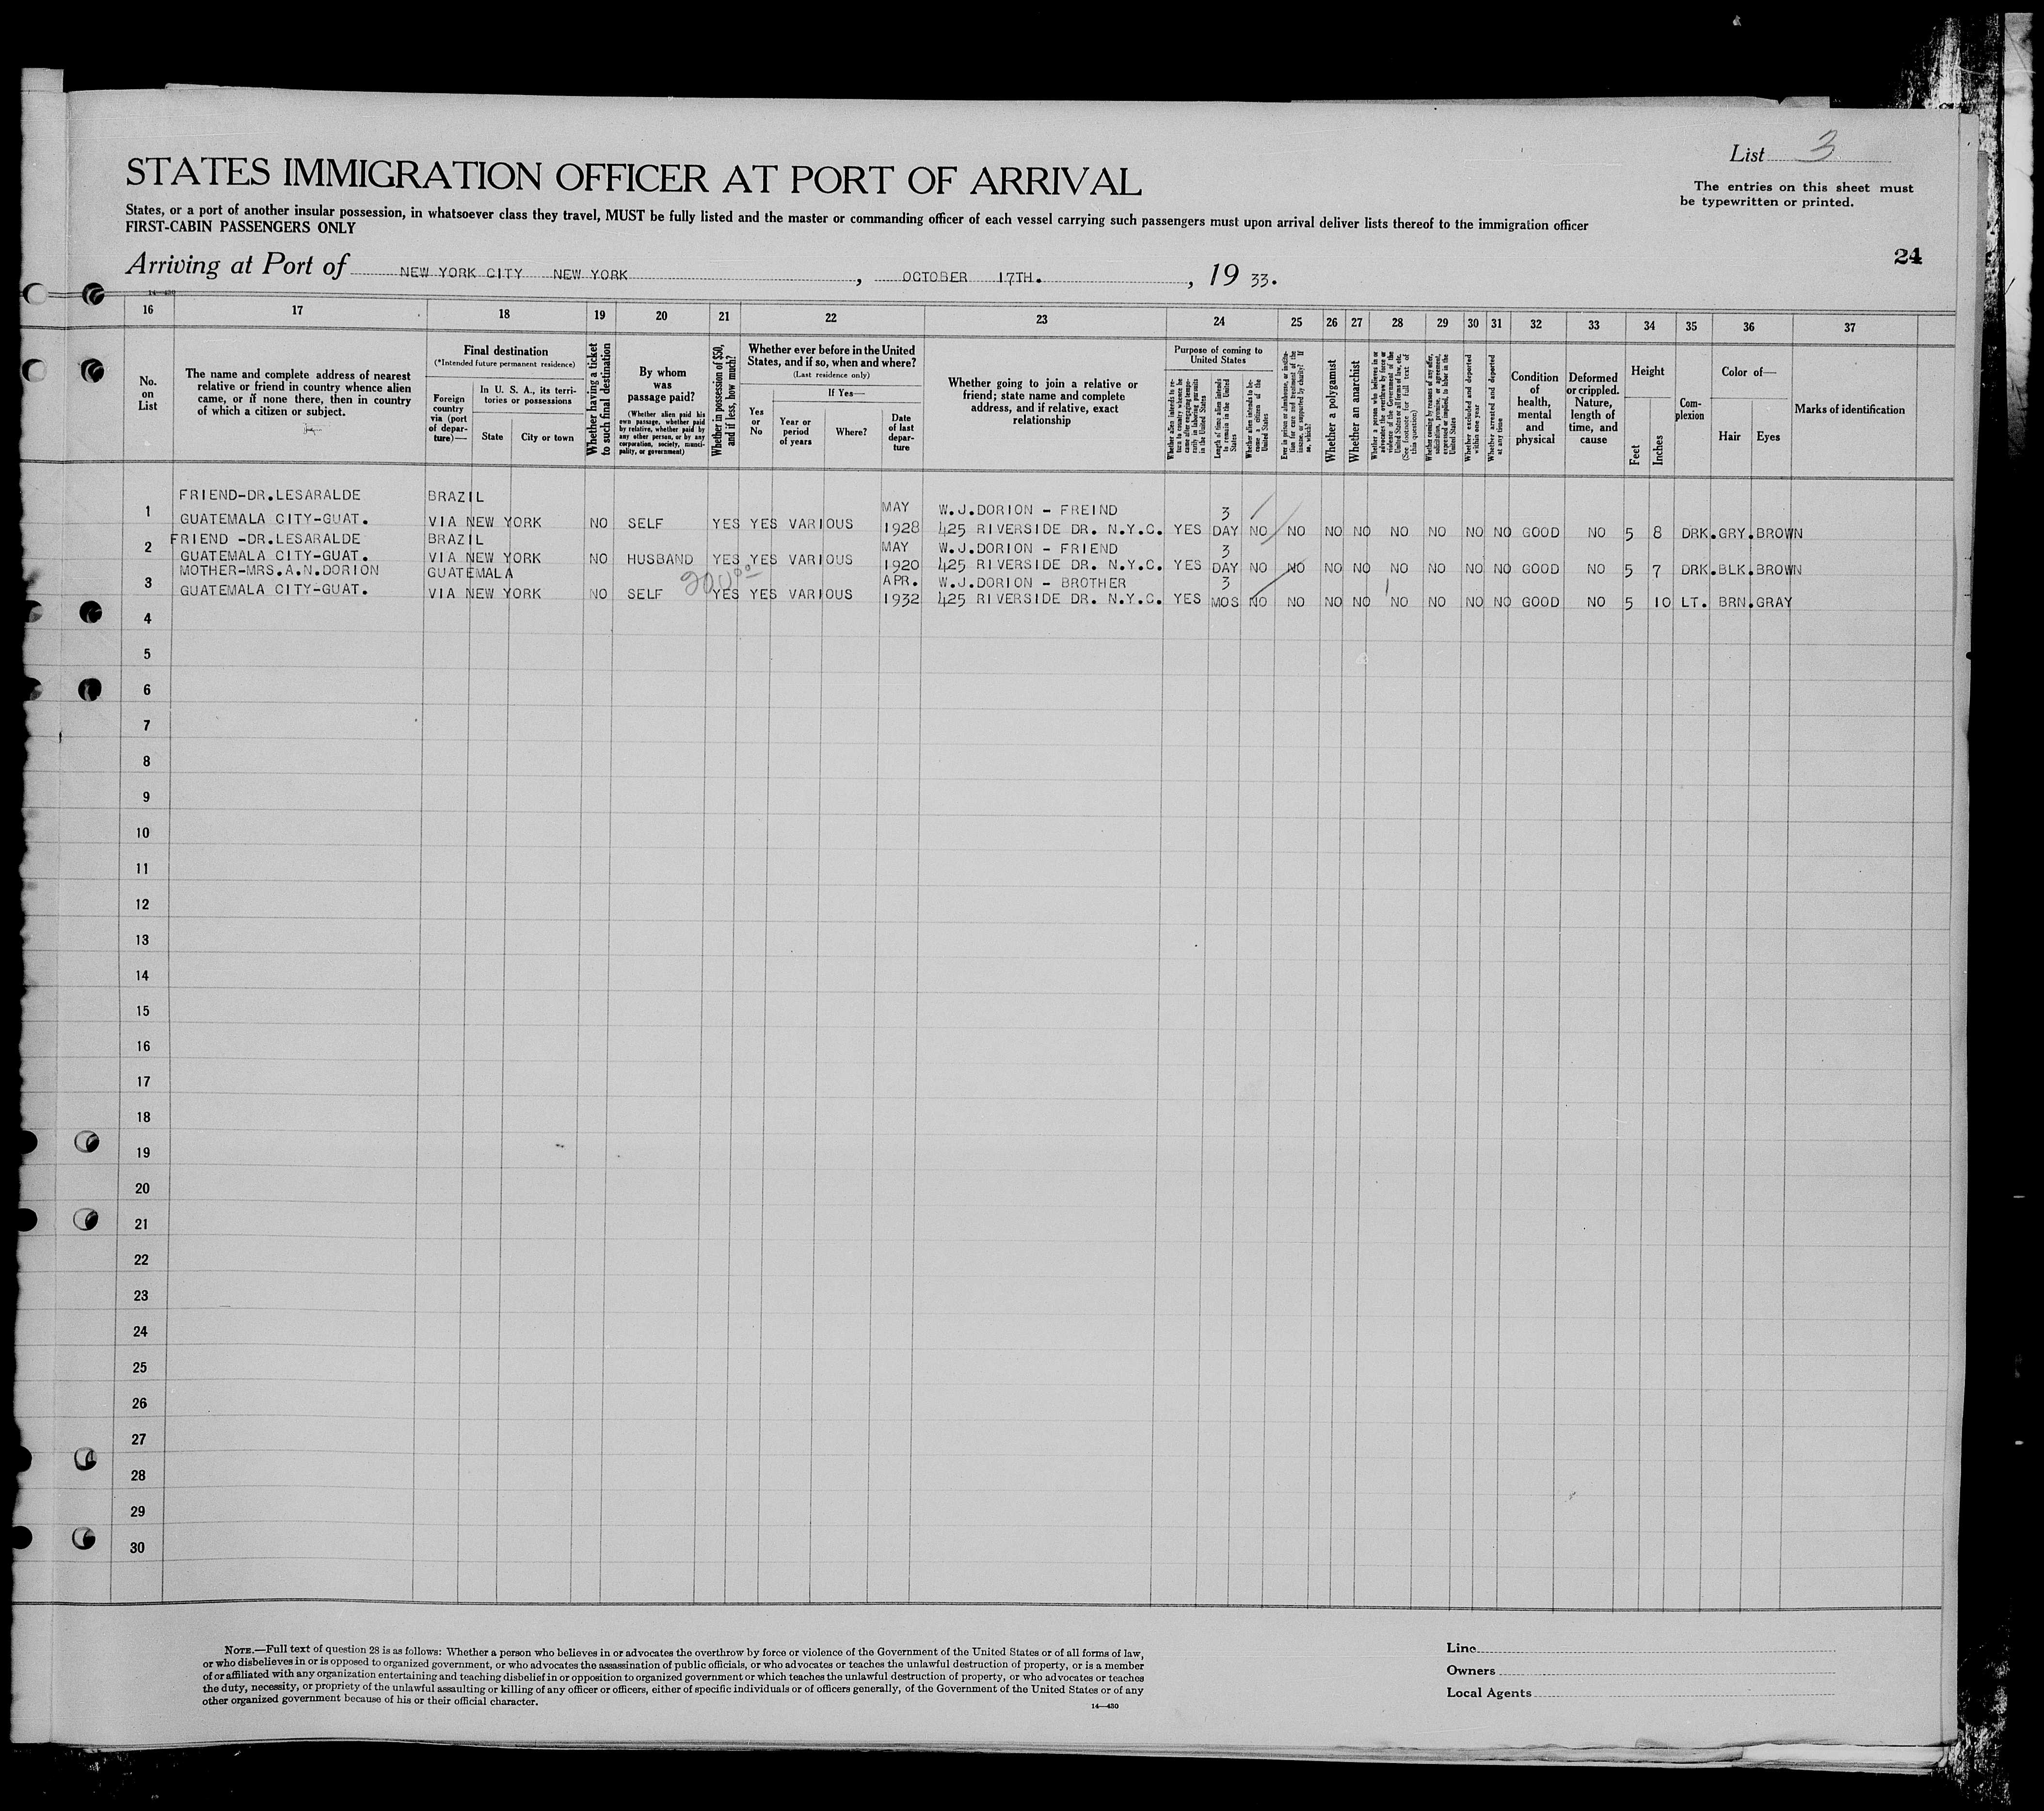 List 3
The entries on this sheet must
be typewritten or printed.
STATES IMMIGRATION OFFICER AT PORT OF ARRIVAL
States, or a port of another insular possession, in whatsoever class they travel, MUST be fully listed and the master or commanding officer of each vessel carrying such passengers must upon arrival deliver lists thereof to the immigration officer
FIRST-CABIN PASSENGERS ONLY
24
Arriving at Port of NEW YORK CITY NEW YORK, OCTOBER 17TH., 19 33.
14—430
16 17 18 19 20 21 22 23 24 25 26 27 28 29 30 31 32 33 34 35 36 37
No. on List
The name and complete address of nearest relative or friend in country whence alien came, or if none there, then in country of which a citizen or subject.
Final destination
(*Intended future permanent residence)
Foreign country via (port of departure)—
In U. S. A., its territories or possessions
State
City or town
Whether having a ticket to such final destination
By whom was passage paid?
(Whether alien paid his own passage, whether paid by relative, whether paid by any other person, or by any corporation, society, municipality, or government)
Whether in possession of $50, and if less, how much?
Whether ever before in the United States, and if so, when and where?
(Last residence only)
Yes or No
If Yes—
Year or period of years
Where?
Date of last departure
Whether going to join a relative or friend; state name and complete address, and if relative, exact relationship
Purpose of coming to United States
Whether alien intends to return to country whence he came after engaging temporarily in laboring pursuits in the United States
Length of time alien intends to remain in the United States
Whether alien intends to become a citizen of the United States
Ever in prison or almshouse, or institution for care and treatment of the insane, or supported by charity? If so, which?
Whether a polygamist
Whether an anarchist
Whether a person who believes in or advocates the overthrow by force or violence of the Government of the United States or all forms of law, etc. (See footnote for full text of this question)
Whether coming by reasons of any offer, solicitation, promise, or agreement, expressed or implied, to labor in the United States
Whether excluded and deported within one year
Whether arrested and deported at any time
Condition of health, mental and physical
Deformed or crippled. Nature, length of time, and cause
Height
Feet
Inches
Complexion
Color of—
Hair
Eyes
Marks of identification
FRIEND-DR.LESARALDE BRAZIL MAY W.J.DORION - FREIND 3
1 GUATEMALA CITY-GUAT. VIA NEW YORK NO SELF YES YES VARIOUS 1928 425 RIVERSIDE DR. N.Y.C. YES DAY NO NO NO NO NO NO NO NO GOOD NO 5 8 DRK.GRY.BROWN
FRIEND -DR.LESARALDE BRAZIL MAY W.J.DORION - FRIEND 3
2 GUATEMALA CITY-GUAT. VIA NEW YORK NO HUSBAND YES YES VARIOUS 1920 425 RIVERSIDE DR. N.Y.C. YES DAY NO NO NO NO NO NO NO NO GOOD NO 5 7 DRK.BLK.BROWN
MOTHER-MRS.A.N.DORION GUATEMALA 200 00 APR. W.J.DORION - BROTHER 3
3 GUATEMALA CITY-GUAT. VIA NEW YORK NO SELF YES YES VARIOUS 1932 425 RIVERSIDE DR. N.Y.C. YES MOS NO NO NO NO NO NO NO NO GOOD NO 5 10 LT. BRN.GRAY
4
5
6
7
8
9
10
11
12
13
14
15
16
17
18
19
20
21
22
23
24
25
26
27
28
29
30
NOTE.—Full text of question 28 is as follows: Whether a person who believes in or advocates the overthrow by force or violence of the Government of the United States or of all forms of law,
or who disbelieves in or is opposed to organized government, or who advocates the assassination of public officials, or who advocates or teaches the unlawful destruction of property, or is a member
of or affiliated with any organization entertaining and teaching disbelief in or opposition to organized government or which teaches the unlawful destruction of property, or who advocates or teaches
the duty, necessity, or propriety of the unlawful assaulting or killing of any officer or officers, either of specific individuals or of officers generally, of the Government of the United States or of any
other organized government because of his or their official character.
14—430
Line
Owners
Local Agents